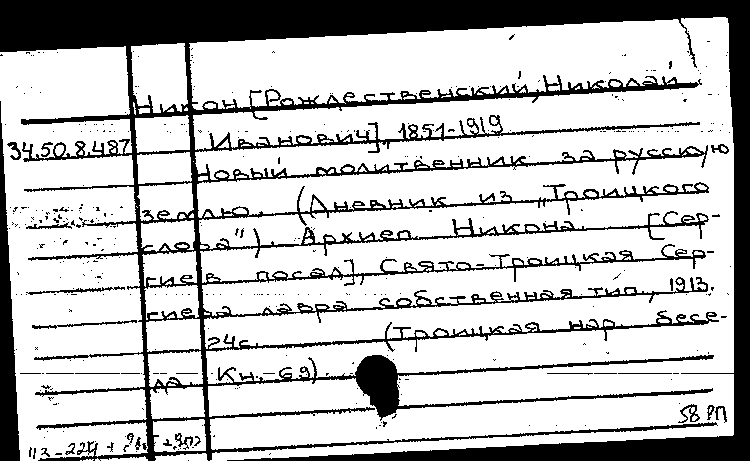 Никон [Рождественский, Николай
34.50.8.487 Иванович], 1851-1919
Новый молитвенник за русскую
землю. (Дневник из „Троицкого
слова"). Архиеп. Никона. [Сер-
гиев посад], Свято-Троицкая Сер-
гиева лавра собственная тип., 1913.
24с. (Троицкая нар. бесе-
да. Кн.-69).
58 РП